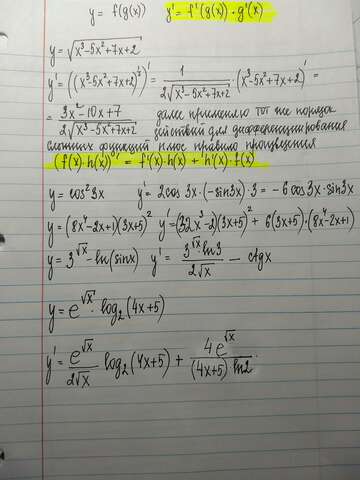 y = f(g(x)) y' = f'(g(x))·g'(x)
y = √(x³-5x²+7x+2)
y' = ((x³-5x²+7x+2)^½)' = 1/(2√(x³-5x²+7x+2)) · (x³-5x²+7x+2)' =
= (3x²-10x+7)/(2√(x³-5x²+7x+2)) далее применяю тот же порядок
действий для дифференцирования
сложных функций плюс правило произведения
(f(x)·h(x))' = f'(x)·h(x) + h'(x)·f(x)
y = cos²3x y' = 2cos3x·(-sin3x)·3 = -6cos3x·sin3x
y = (8x⁴-2x+1)(3x+5)² y' = (32x³-2)(3x+5)² + 6(3x+5)·(8x⁴-2x+1)
y = 3^√x - ln(sinx) y' = (3^√x·ln3)/(2√x) - ctgx
y = e^√x · log₂(4x+5)
y' = e^√x/(2√x) · log₂(4x+5) + 4e^√x/((4x+5)ln2).